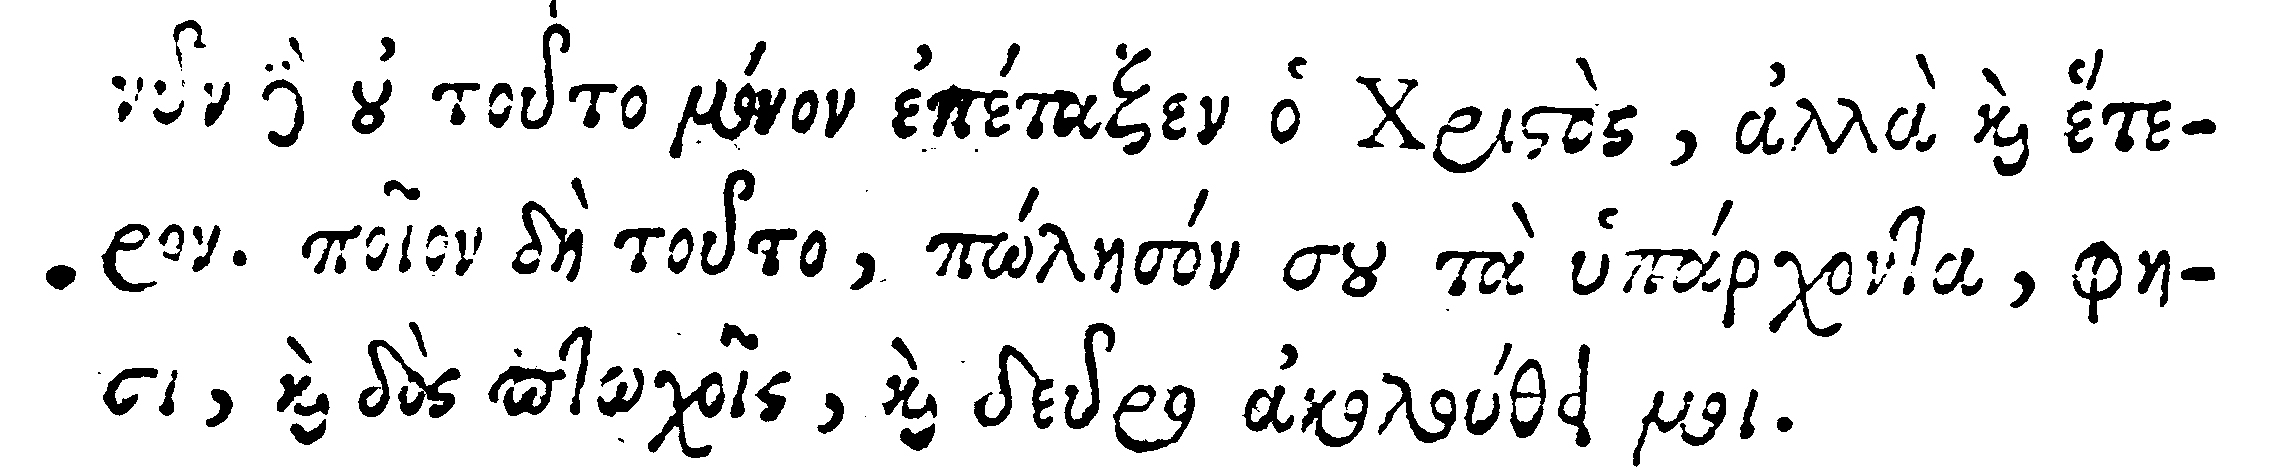 νῦν δὲ οὐ τοῦτο μόνον ἐπέταξεν ὁ Χριστὸς, ἀλλὰ καὶ ἕτε-
ρον. ποῖον δὴ τοῦτο, πώλησόν σου τὰ ὑπάρχοντα, φη-
σι, καὶ δὸς πτωχοῖς, καὶ δεῦρο ἀκολούθει μοι.